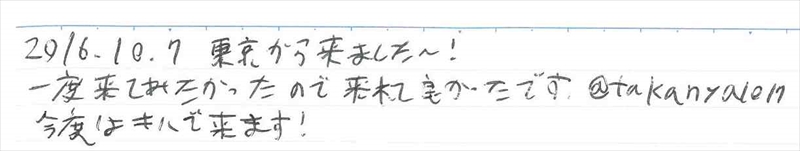 2016.10.7 東京から来ました～!
一度来てみたかったので来れて良かったです @takanya1017
今度はキハで来ます!